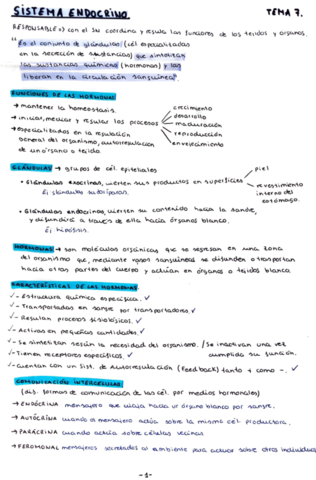 SISTEMA ENDOCRINO TEMA 7.
RESPONSABLE (s) con el SN coordina y regula las funciones de los tejidos y órganos.
"Es el conjunto de glándulas (cél especializadas
en la secreción de sustancias) que sintetizan
las sustancias químicas (hormonas) y las
liberan en la circulación sanguínea"
FUNCIONES DE LAS HORMONAS
→ mantener la homeostasis.
→ iniciar, mediar y regular los procesos
crecimiento
desarrollo
maduración
reproducción
envejecimiento
→ especializados en la regulación
general del organismo, autorregulación
de un órgano o tejido
GLÁNDULAS → grupos de cél. epiteliales
• Glándulas exocrinas, vierten sus productos en superficie
piel
revestimiento
interno del
estómago.
Ej glándulas sudoríparas.
• Glándulas endocrinas, vierten su contenido hacia la sangre,
y difundirá a través de ella hacia órganos blanco.
Ej hipófisis.
HORMONAS → son moléculas orgánicas que se segregan en una zona
del organismo que, mediante vasos sanguíneos se difunden o transportan
hacia otras partes del cuerpo y actúan en órganos o tejidos blanco.
CARACTERÍSTICAS DE LAS HORMONAS
✓- Estructura química específica. ✓
✓- Transportadas en sangre por transportadores. ✓
✓- Regulan procesos fisiológicos. ✓
✓- Activas en pequeñas cantidades. ✓
✓- Se sintetizan según la necesidad del organismo. / Se inactivan una vez
cumplida su función.
✓- Tienen receptores específicos. ✓
✓- Cuentan con un sist. de Autorregulación (Feedback) tanto + como -. ✓
COMUNICACIÓN INTERCELULAR
(dif. formas de comunicación de las cél. por medios hormonales)
→ ENDÓCRINA mensajero que viaja hacia un órgano blanco por sangre.
→ AUTÓCRINA cuando el mensajero actúa sobre la misma cél productora.
→ PARÁCRINA cuando actúa sobre células vecinas
→ FEROMONAL mensajeros secretados al ambiente para actuar sobre otros individuos
-1-